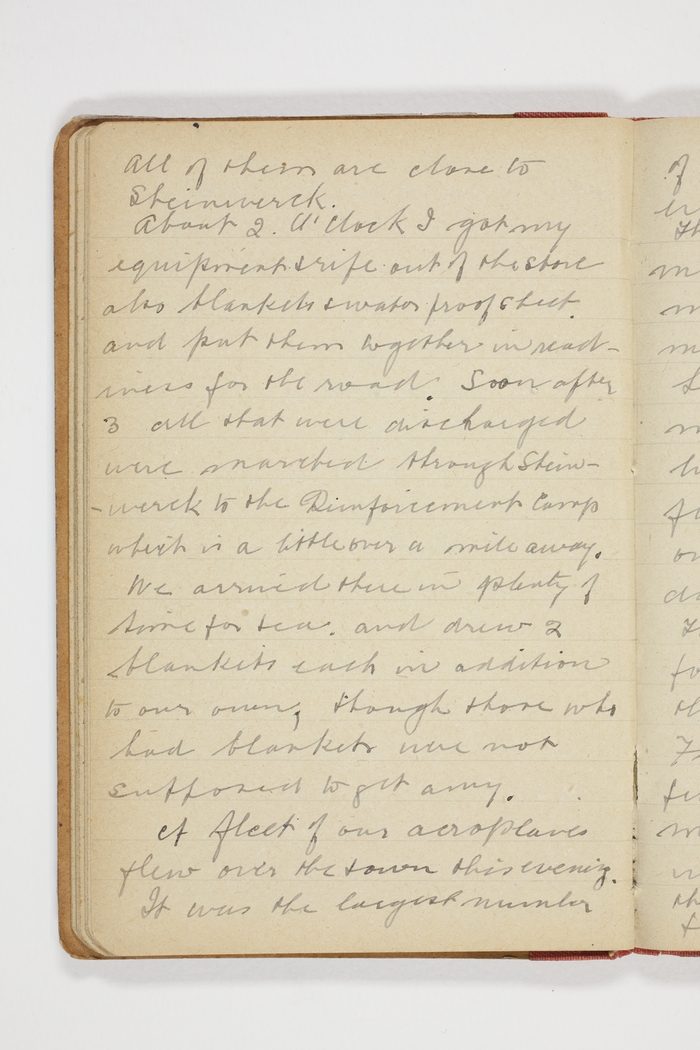 All of them are close to
Steinwerck.
About 2. O'Clock I got my
equipment & rife out of the store
also blankets & water proof sheet.
and put them together in read-
iness for the road. Soon after
3 all that were discharged
were marched through Stein-
-werck to the Reinforcement Camp
which is a little over a mile away.
We arrived there in plenty of
time for tea. and drew 2
blankets each in addition
to our own, though those who
had blankets were not
supposed to get any.
A fleet of our aeroplanes
flew over the town this evening.
It was the largest number
of